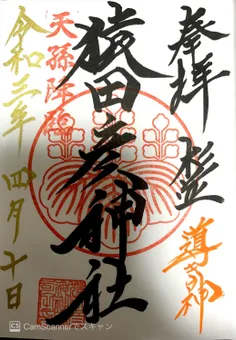 奉拝
導きの神
猿田彦神社
天孫降臨
令和三年 四月十日
CS CamScannerでスキャン